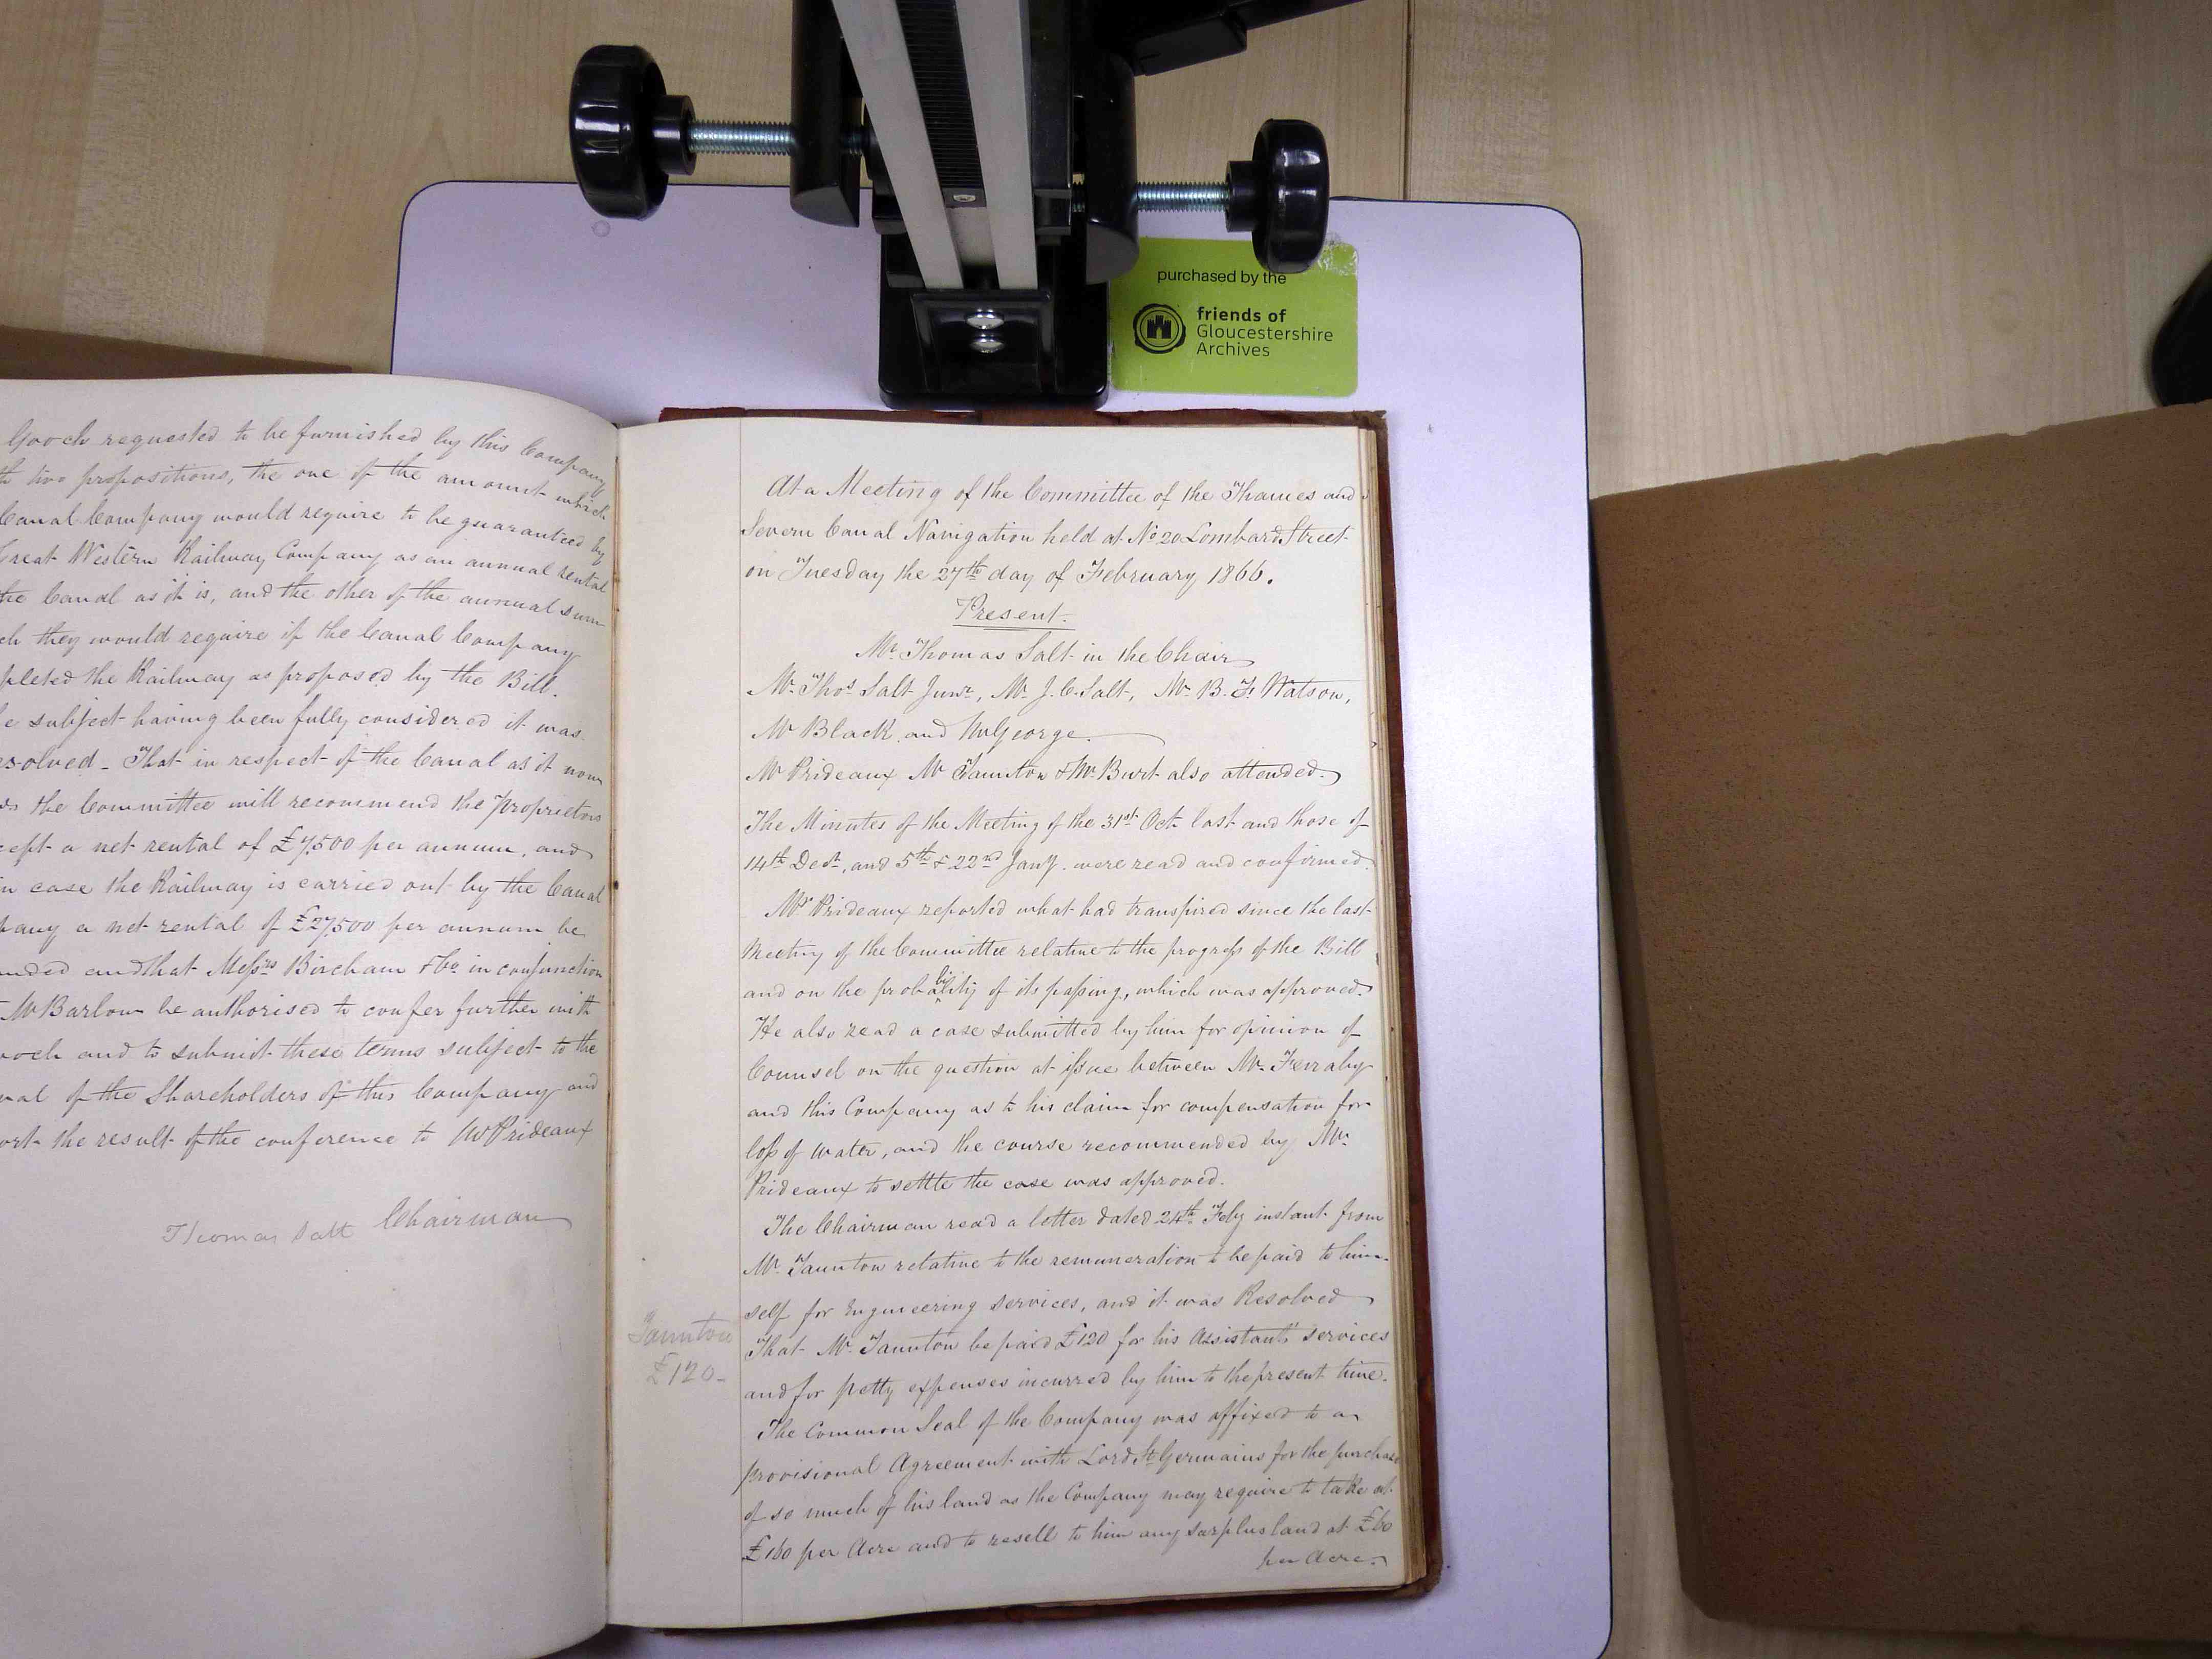 purchased by the
friends of
Gloucestershire
Archives
Gooch requested to be furnished by this Company
two propositions, the one of the amount which
Canal Company would require to be guaranteed by
Great Western Railway Company as an annual rental
the Canal as it is, and the other of the annual sum
they would require if the Canal Company
the Railway as proposed by the Bill.
subject having been fully considered it was
That in respect of the Canal as it now
the Committee will recommend the Proprietors
a net rental of £7,500 per annum, and
in case the Railway is carried out by the Canal
a net rental of £27,500 per annum be
and that Messrs Bircham & Co in conjunction
Mr Barlow be authorised to confer further with
and to submit these terms subject to the
of the Shareholders of this Company and
the result of the conference to Mr Prideaux
Thomas Salt Chairman
At a Meeting of the Committee of the Thames and
Severn Canal Navigation held at No 20 Lombard Street
on Tuesday the 27th day of February 1866.
Present.
Mr Thomas Salt in the Chair
Mr Thos Salt Junr, Mr J. C. Salt, Mr B. F. Watson,
Mr Black, and Mr George.
Mr Prideaux Mr Taunton & Mr Burt also attended.
The Minutes of the Meeting of the 31st Oct last and those of
14th Decr, and 5th & 22nd Jany. were read and confirmed.
Mr Prideaux reported what had transpired since the last
Meeting of the Committee relative to the progress of the Bill
and on the probability of its passing, which was approved.
He also read a case submitted by him for opinion of
Counsel on the question at issue between Mr Ferraby
and this Company as to his claim for compensation for
loss of water, and the course recommended by Mr
Prideaux to settle the case was approved.
The Chairman read a letter dated 24th Feby instant from
Mr Taunton relative to the remuneration to be paid to him-
self for Engineering services, and it was Resolved
Taunton
£120-
That Mr Taunton be paid £120 for his Assistants' services
and for petty expenses incurred by him to the present time.
The Common Seal of the Company was affixed to a
provisional Agreement with Lord St Germains for the purchase
of so much of his land as the Company may require to take at
£160 per Acre and to resell to him any surplus land at £60
per Acre.